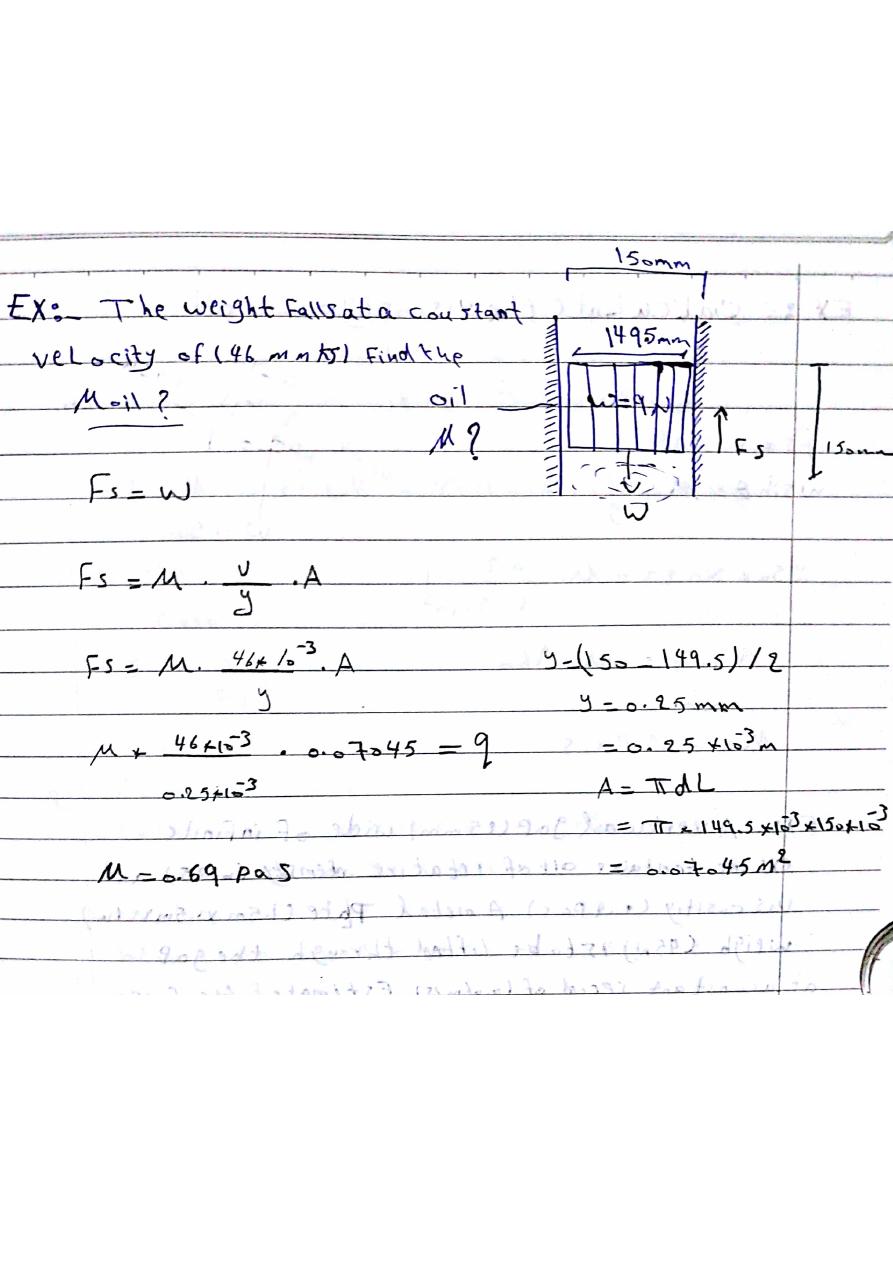 150mm
EX:- The weight Falls at a constant
velocity of (46 mm/s) Find the
M oil ?
1495mm
w=9N
oil
M?
Fs
150mm
W
Fs = W
Fs = M . v/y . A
Fs = M . 46*10^-3/y . A
y=(150-149.5)/2
y=0.25mm
M * 46*10^-3/0.25*10^-3 * 0.07045 = 9
=0.25*10^-3m
A= πdL
= π*149.5*10^-3*150*10^-3
M=0.69 pas
= 0.07045m²